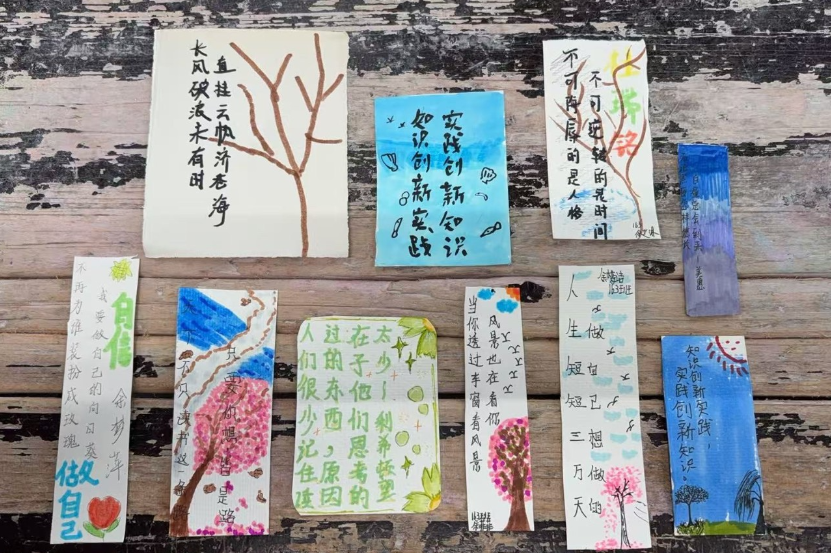 长风破浪未有时
直挂云帆济沧海
知识创新实践
实践创新知识
铭
不可逆转的是时间
的是人格
自信
不再为谁装扮成玫瑰
我要做自己的向日葵
余梦萍
做自己
只要你想皆是路
不只读书这一条
人们很少记住
过的东西，原因
在于他们思考的
太少
当你透过车窗看风景
风景也在看你
人生短短三万天
做自己想做的
知识创新实践，
实践创新知识。